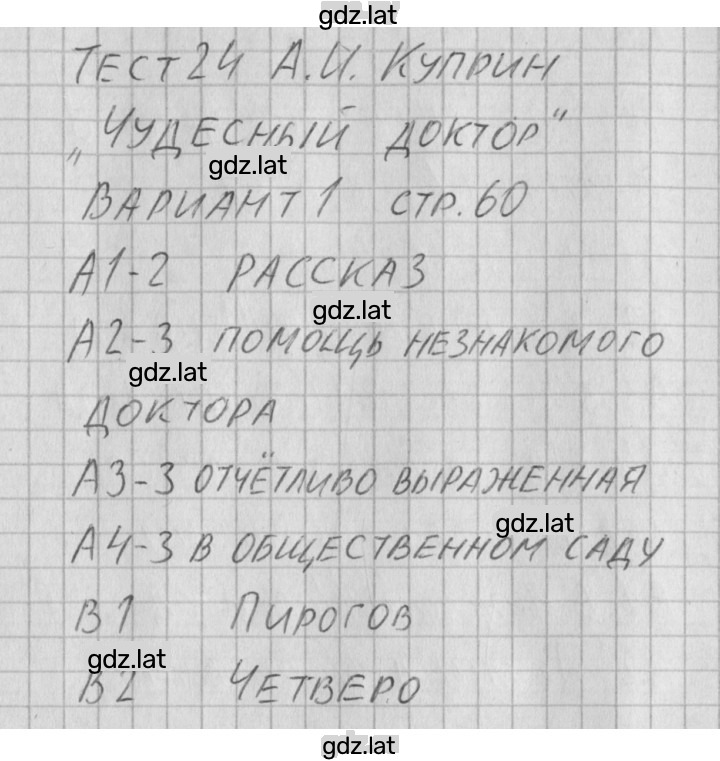 gdz.lat
ТЕСТ 24 А.И. КУПРИН
„ЧУДЕСНЫЙ ДОКТОР"
gdz.lat
ВАРИАНТ 1 СТР. 60
А1-2 РАССКАЗ
gdz.lat
А2-3 ПОМОЩЬ НЕЗНАКОМОГО
gdz.lat
ДОКТОРА
А3-3 ОТЧЁТЛИВО ВЫРАЖЕННАЯ
gdz.lat
А4-3 В ОБЩЕСТВЕННОМ САДУ
В1 ПИРОГОВ
gdz.lat
В2 ЧЕТВЕРО
gdz.lat